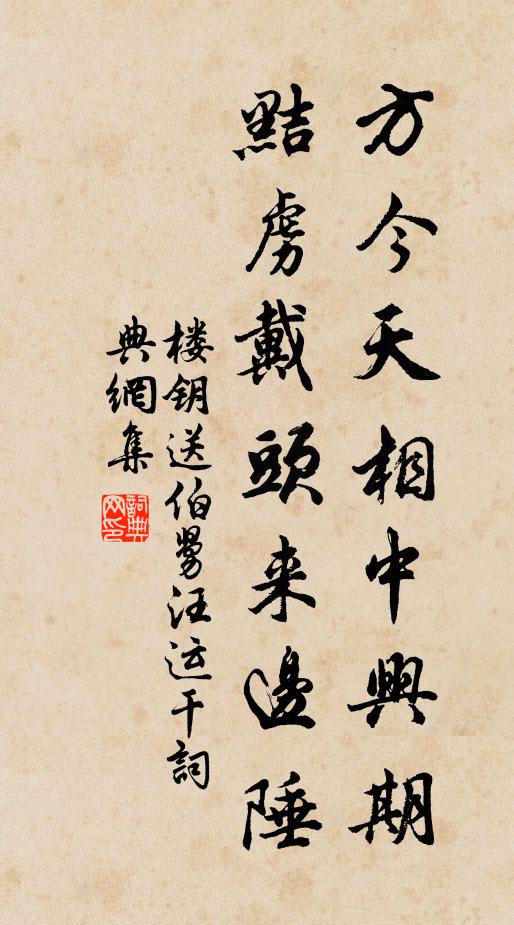 方今天相中興期
黠虜戴頭来邊陲
楼钥送伯舅汪运干詞
典網集
詞典网印